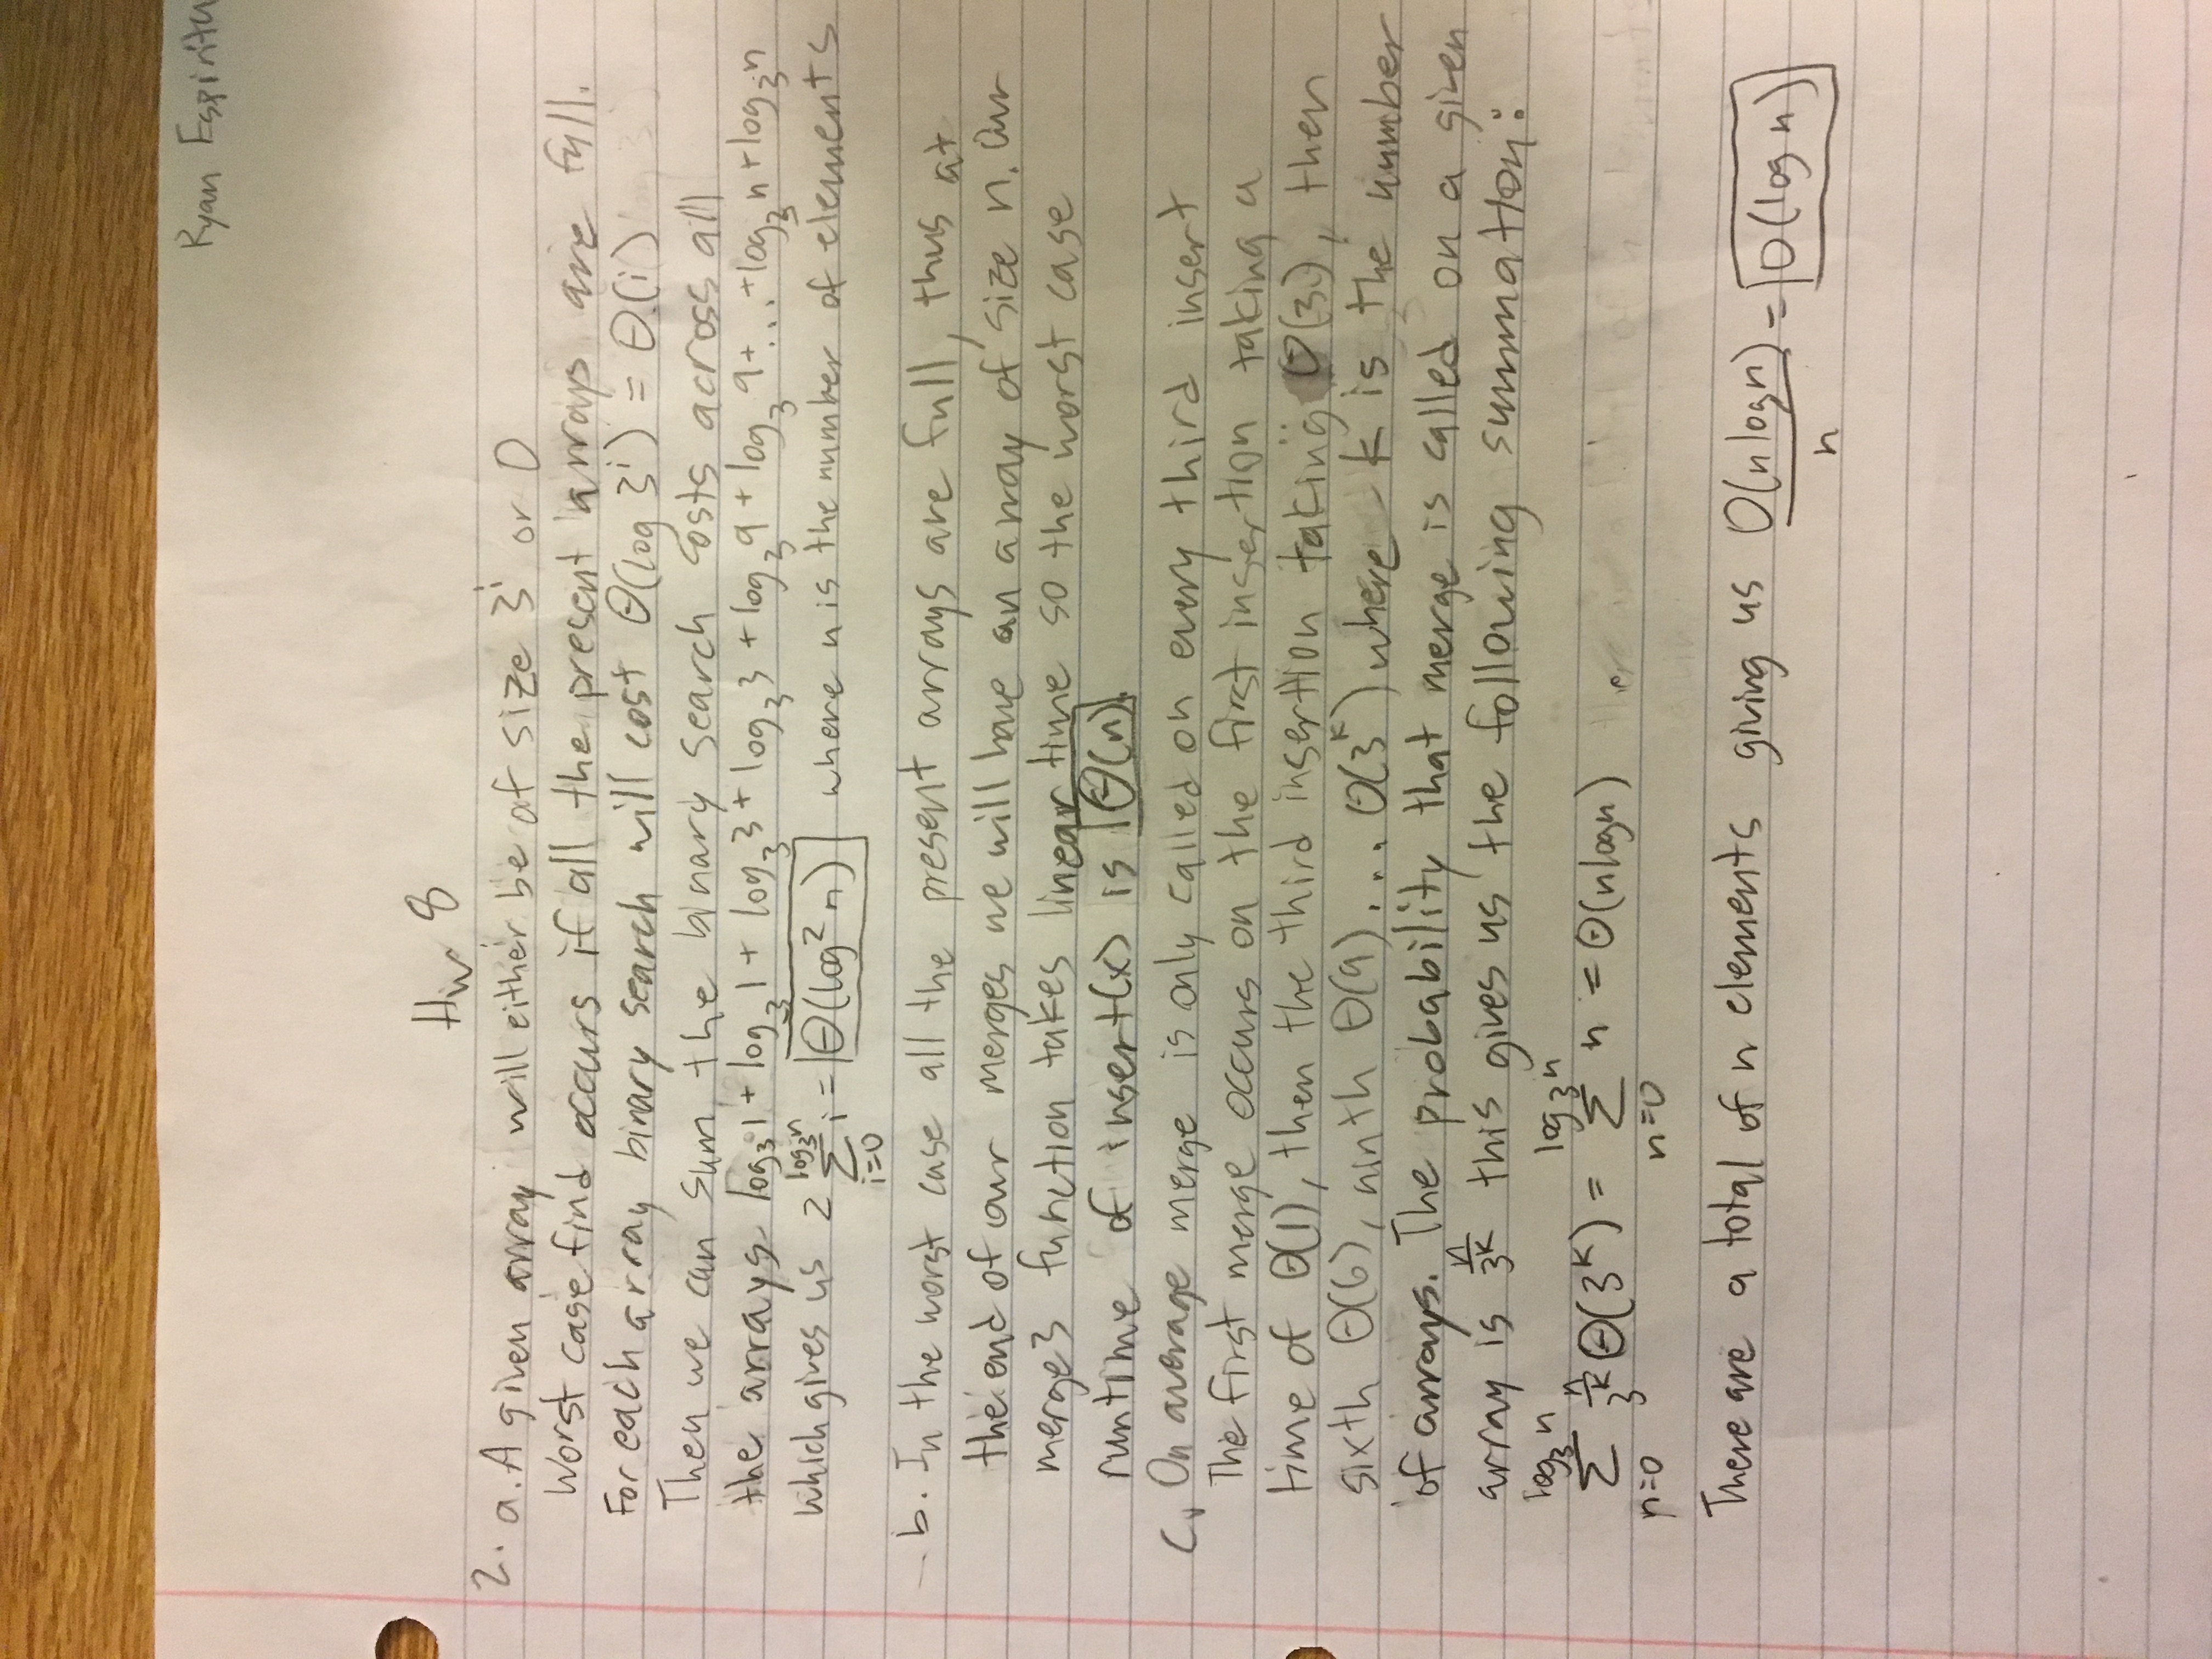 Ryan Espiritu
Hw 8
2. a. A given array will either be of size 3^i or 0
Worst case find occurs if all the present arrays are full.
For each array binary search will cost Θ(log 3^i) = Θ(i)
Then we can sum the binary search costs across all
the arrays log₃1 + log₃1 + log₃3 + log₃3 + log₃9 + log₃9+...+log₃n+log₃n
which gives us 2 Σ_{i=0}^{log₃n} i = Θ(log² n) where n is the number of elements
b. In the worst case all the present arrays are full, thus at
the end of our merges we will have an array of size n. Our
merge3 function takes linear time so the worst case
runtime of insert(x) is Θ(n).
c. On average merge is only called on every third insert
The first merge occurs on the first insertion taking a
time of Θ(1), then the third insertion taking Θ(3), then
sixth Θ(6), ninth Θ(9)... Θ(3^k) where k is the number
of arrays. The probability that merge is called on a given
array is n/3^k this gives us the following summation:
Σ_{n=0}^{log₃n} n/3^k Θ(3^k) = Σ_{n=0}^{log₃n} n = Θ(nlogn)
There are a total of n elements giving us O(nlogn)/n = O(log n)